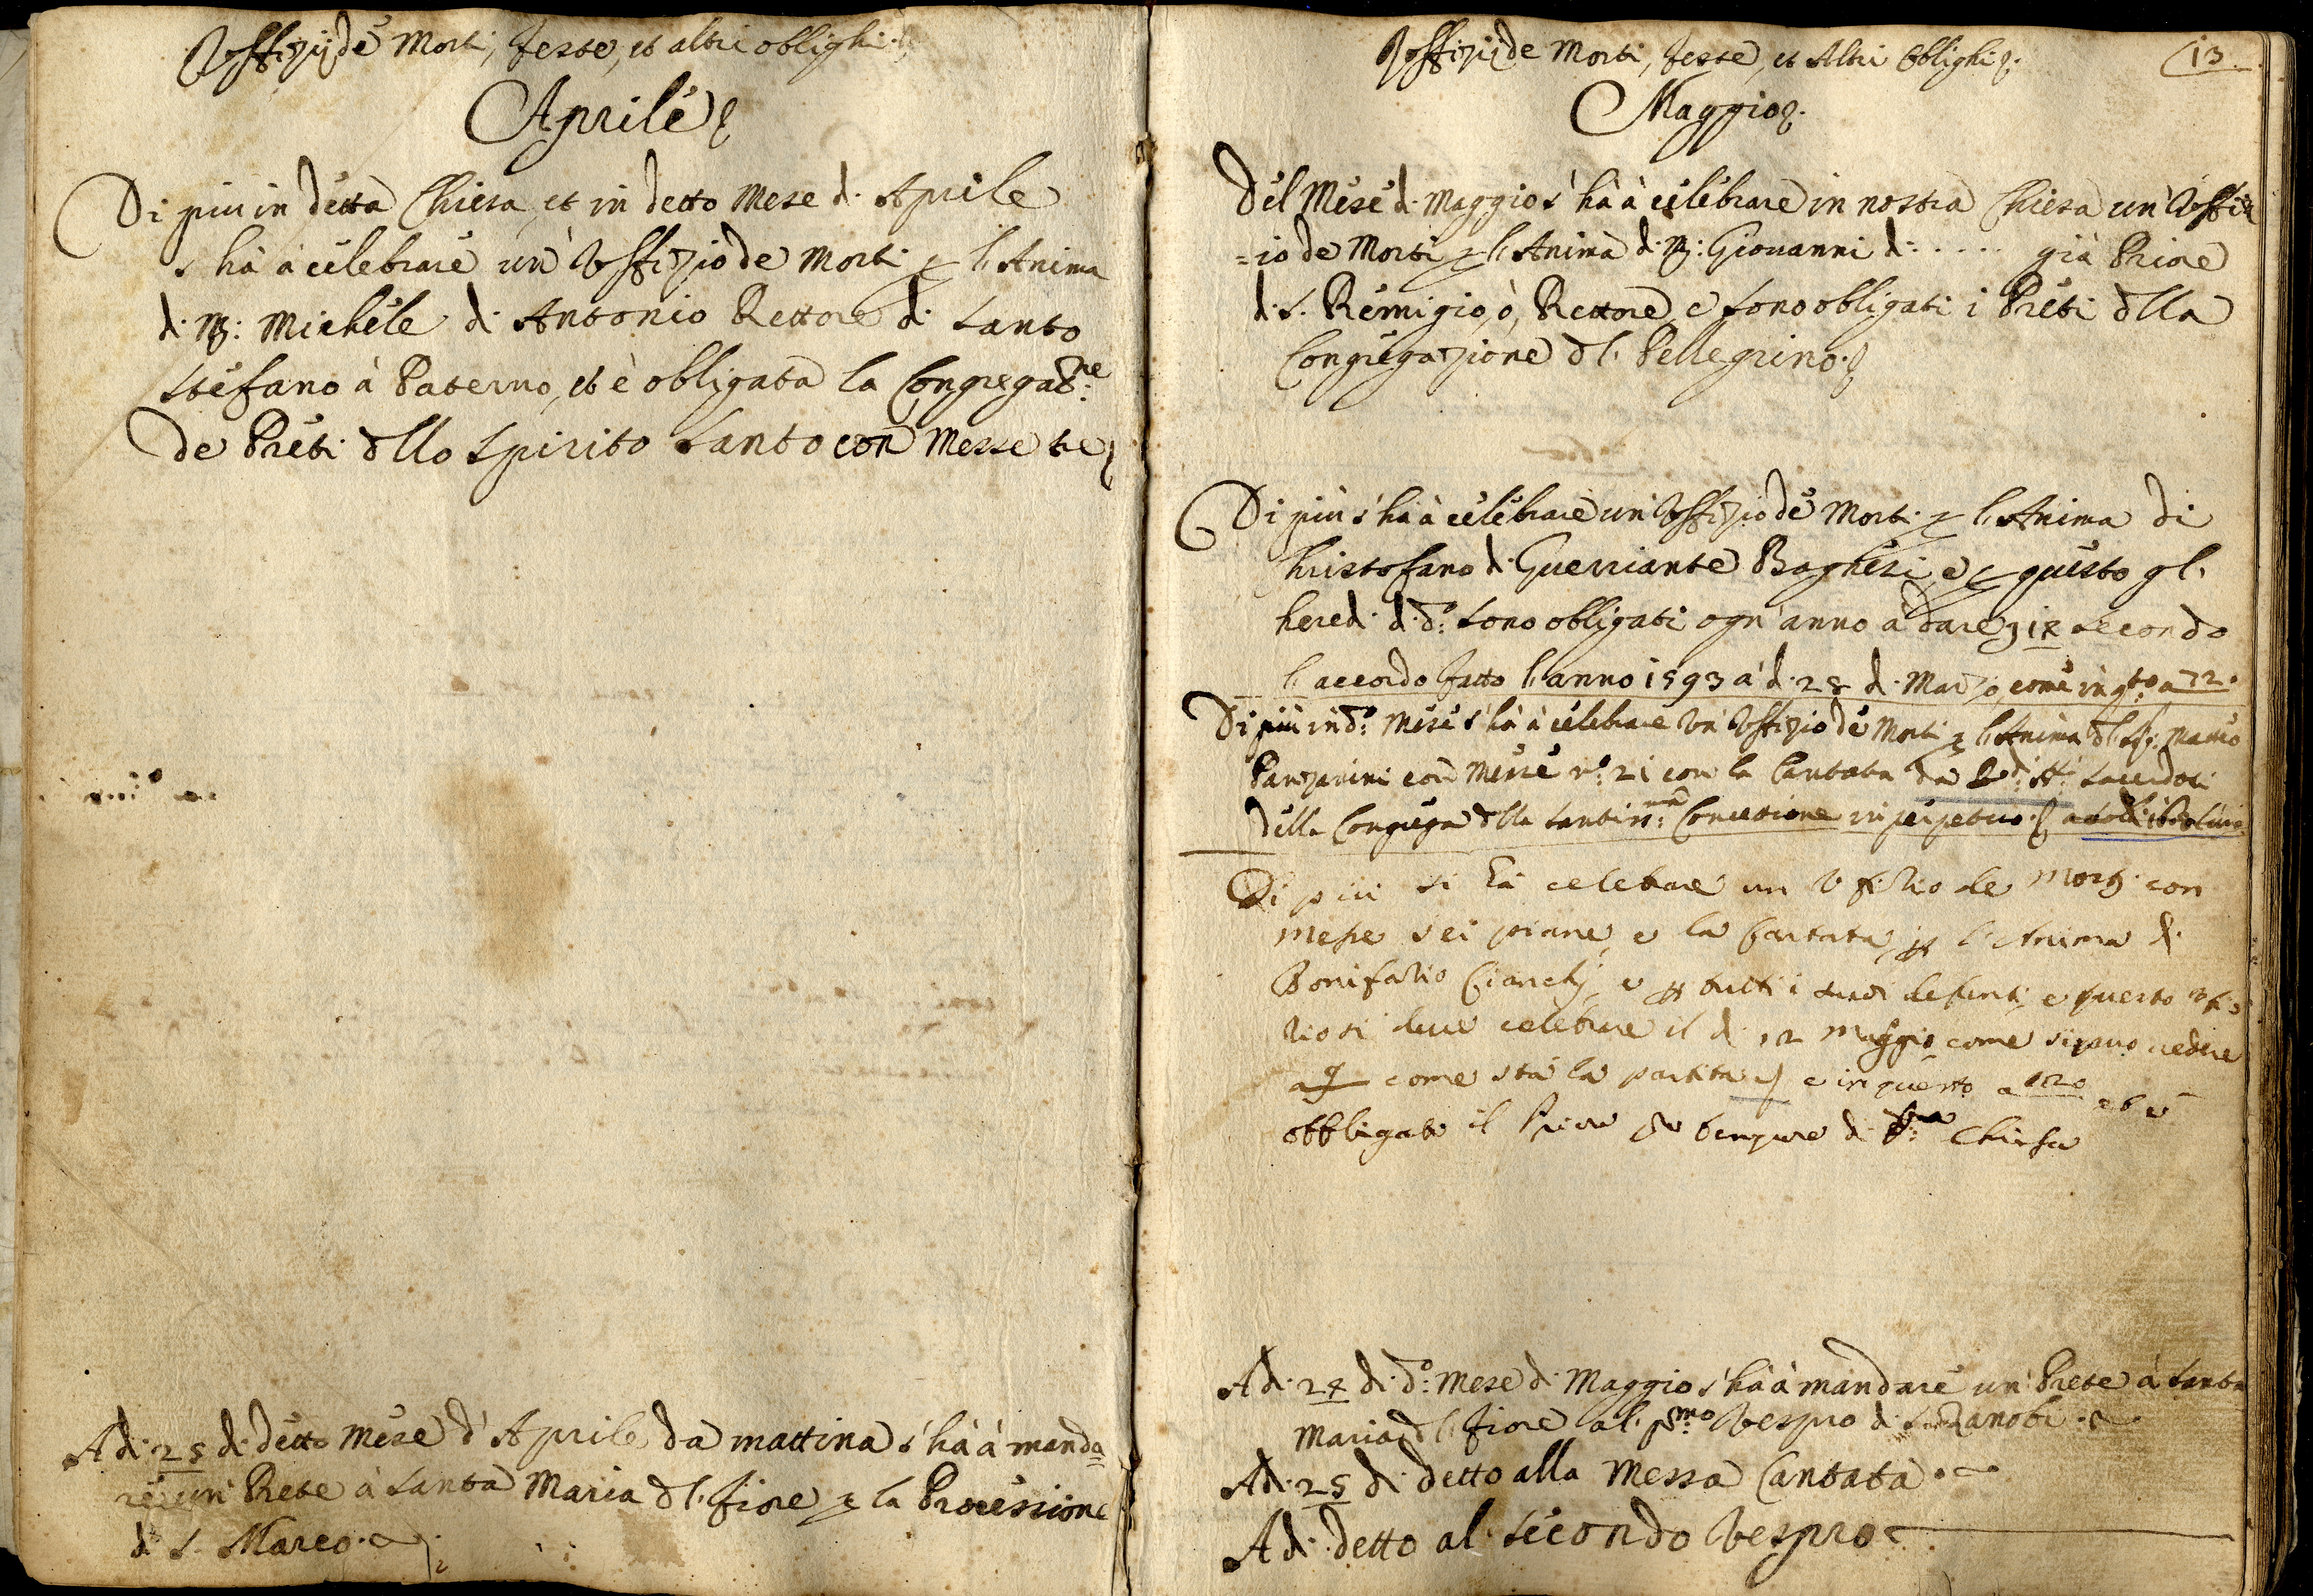 Uffizij de Morti, Feste, et altri oblighi.
Aprile
Di piu in detta Chiesa, et in detto Mese di Aprile
s'hà à celebrare un' Uffizio de Morti p l'Anima
di M: Michele di Antonio Rettore di Santo
Stefano à Paterno, et è obligata la Congregat.ne
de Preti dllo Spirito Santo con Messe tre
Adi 25 di detto Mese d'Aprile da mattina s'hà à manda=
re un' Prete à Santa Maria dl Fiore p la Processione
di S. Marco.
Uffizij de Morti, Feste, et Altri Oblighi.
13
Maggio.
Del Mese di Maggio s'hà à celebrare in nostra Chiesa un' Uffiz
=io de Morti p l'Anima di M: Giovanni di: .... già Priore
di S. Remigio, ò, Rettore e sono obligati i Preti dlla
Congregazione dl Pellegrino.
Di più s'hà à celebrare un' Uffizio de Morti p l'Anima di
Christofano di Guerriante Baghesi, e p questo gl'
heredi di do: sono obligati ogn' anno à dare 18 secondo
l'accordo fatto l'anno 1593 à di 28 di Marzo, come in qto a 72.
Di più in do: Mese s'hà à celebrare un' Uffizio de Morti p l'Anima dl Marco
Panzanini con Messe no: 21 con la Cantata da Sacerdoti
della Congrega dlla Santiss:ma Concetione in perpetuo.
Di piu si hà celebrare un Ufizio de Morti con
messe sei piane, e la Cantata, p l'Anima di
Bonifazio Cianchi, e p tutti i suoi defunti, e questo ufi
zio si deve celebrare il di 12 Maggio come si puo vedere
a come stà la partita e in questo a 120
obbligato il Priore pro tempore di Chiesa
Adi 24 di do: Mese di Maggio s'hà à mandare un' Prete à Santa
Maria dl Fiore al pmo: Vespro di S. Zanobi.
Adi 25 di detto alla Messa Cantata.
Adi detto al secondo Vespro